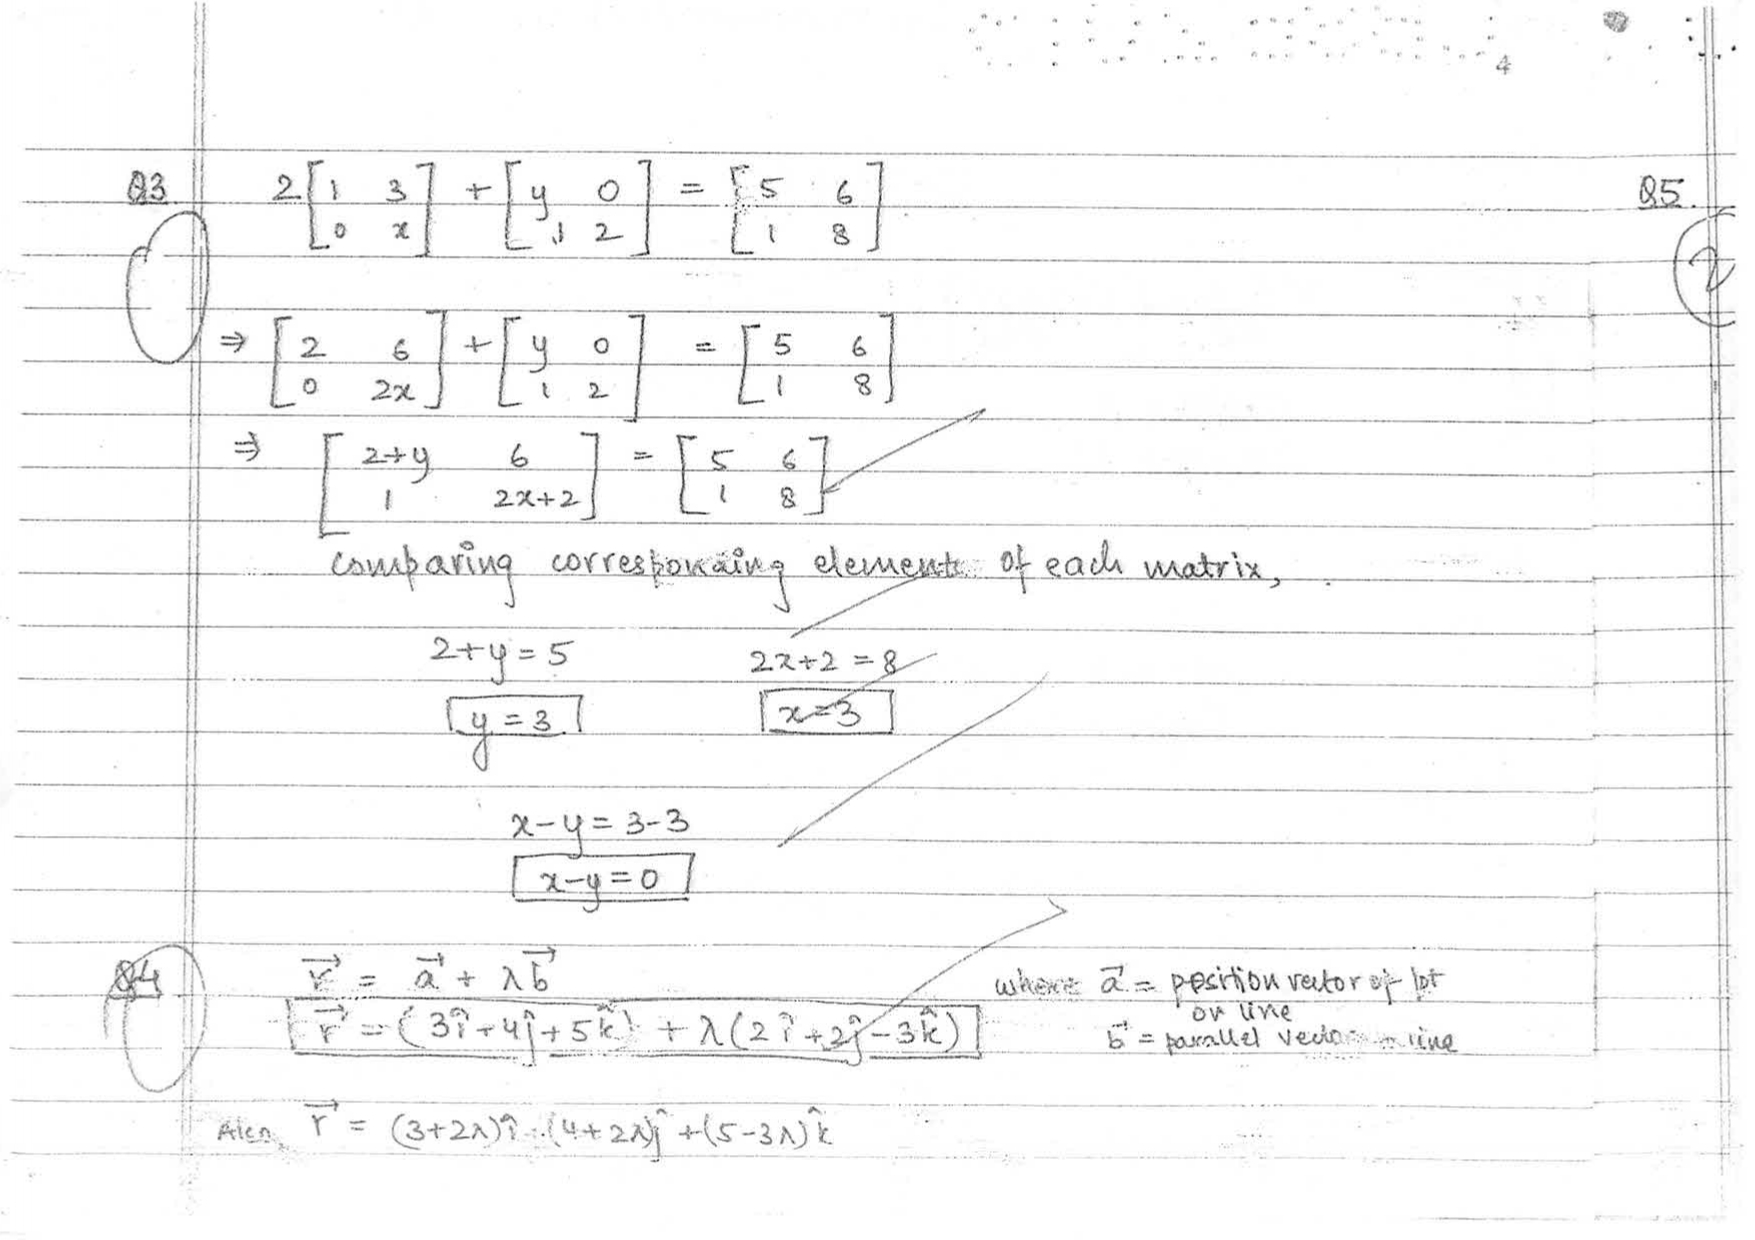 4
Q3 2[1 3; 0 x] + [y 0; 1 2] = [5 6; 1 8]
⇒ [2 6; 0 2x] + [y 0; 1 2] = [5 6; 1 8]
⇒ [2+y 6; 1 2x+2] = [5 6; 1 8]
comparing corresponding elements of each matrix,
2+y=5 2x+2=8
y=3 x=3
x-y=3-3
x-y=0
Q4 r⃗ = a⃗ + λb⃗ where a⃗ = position vector of pt
on line
r⃗ = (3î+4ĵ+5k̂) + λ(2î+2ĵ-3k̂) b⃗ = parallel vector line
Also r⃗ = (3+2λ)î (4+2λ)ĵ +(5-3λ)k̂
Q5.
2